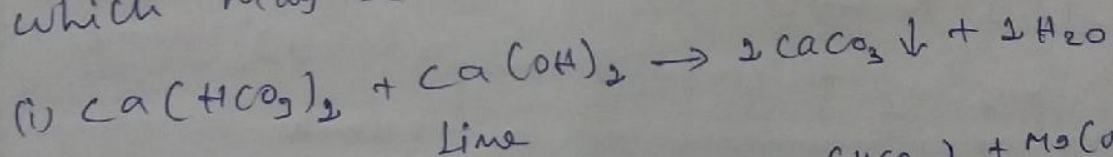 which
(i) Ca(HCO3)2 + Ca(OH)2 → 2 CaCO3 ↓ + 2 H2O
Lime
+ Mg(O